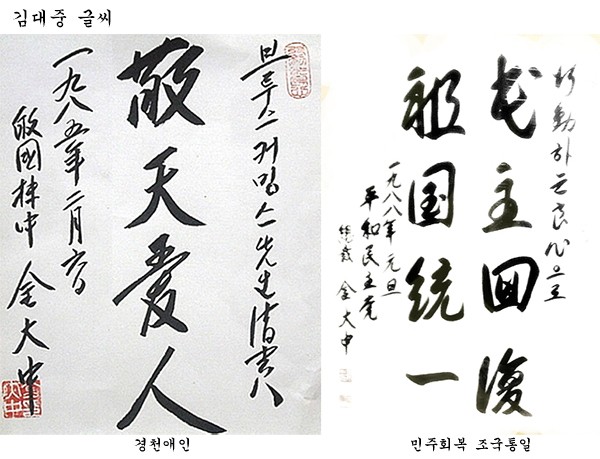 김대중 글씨
브루스 커밍스 先生
敬天愛人
一九八五年二月六日
金大中
行動하는 良心으로
民主回復
祖国統一
一九八八年 元旦
平和民主党
總裁 金大中
경천애인
민주회복 조국통일